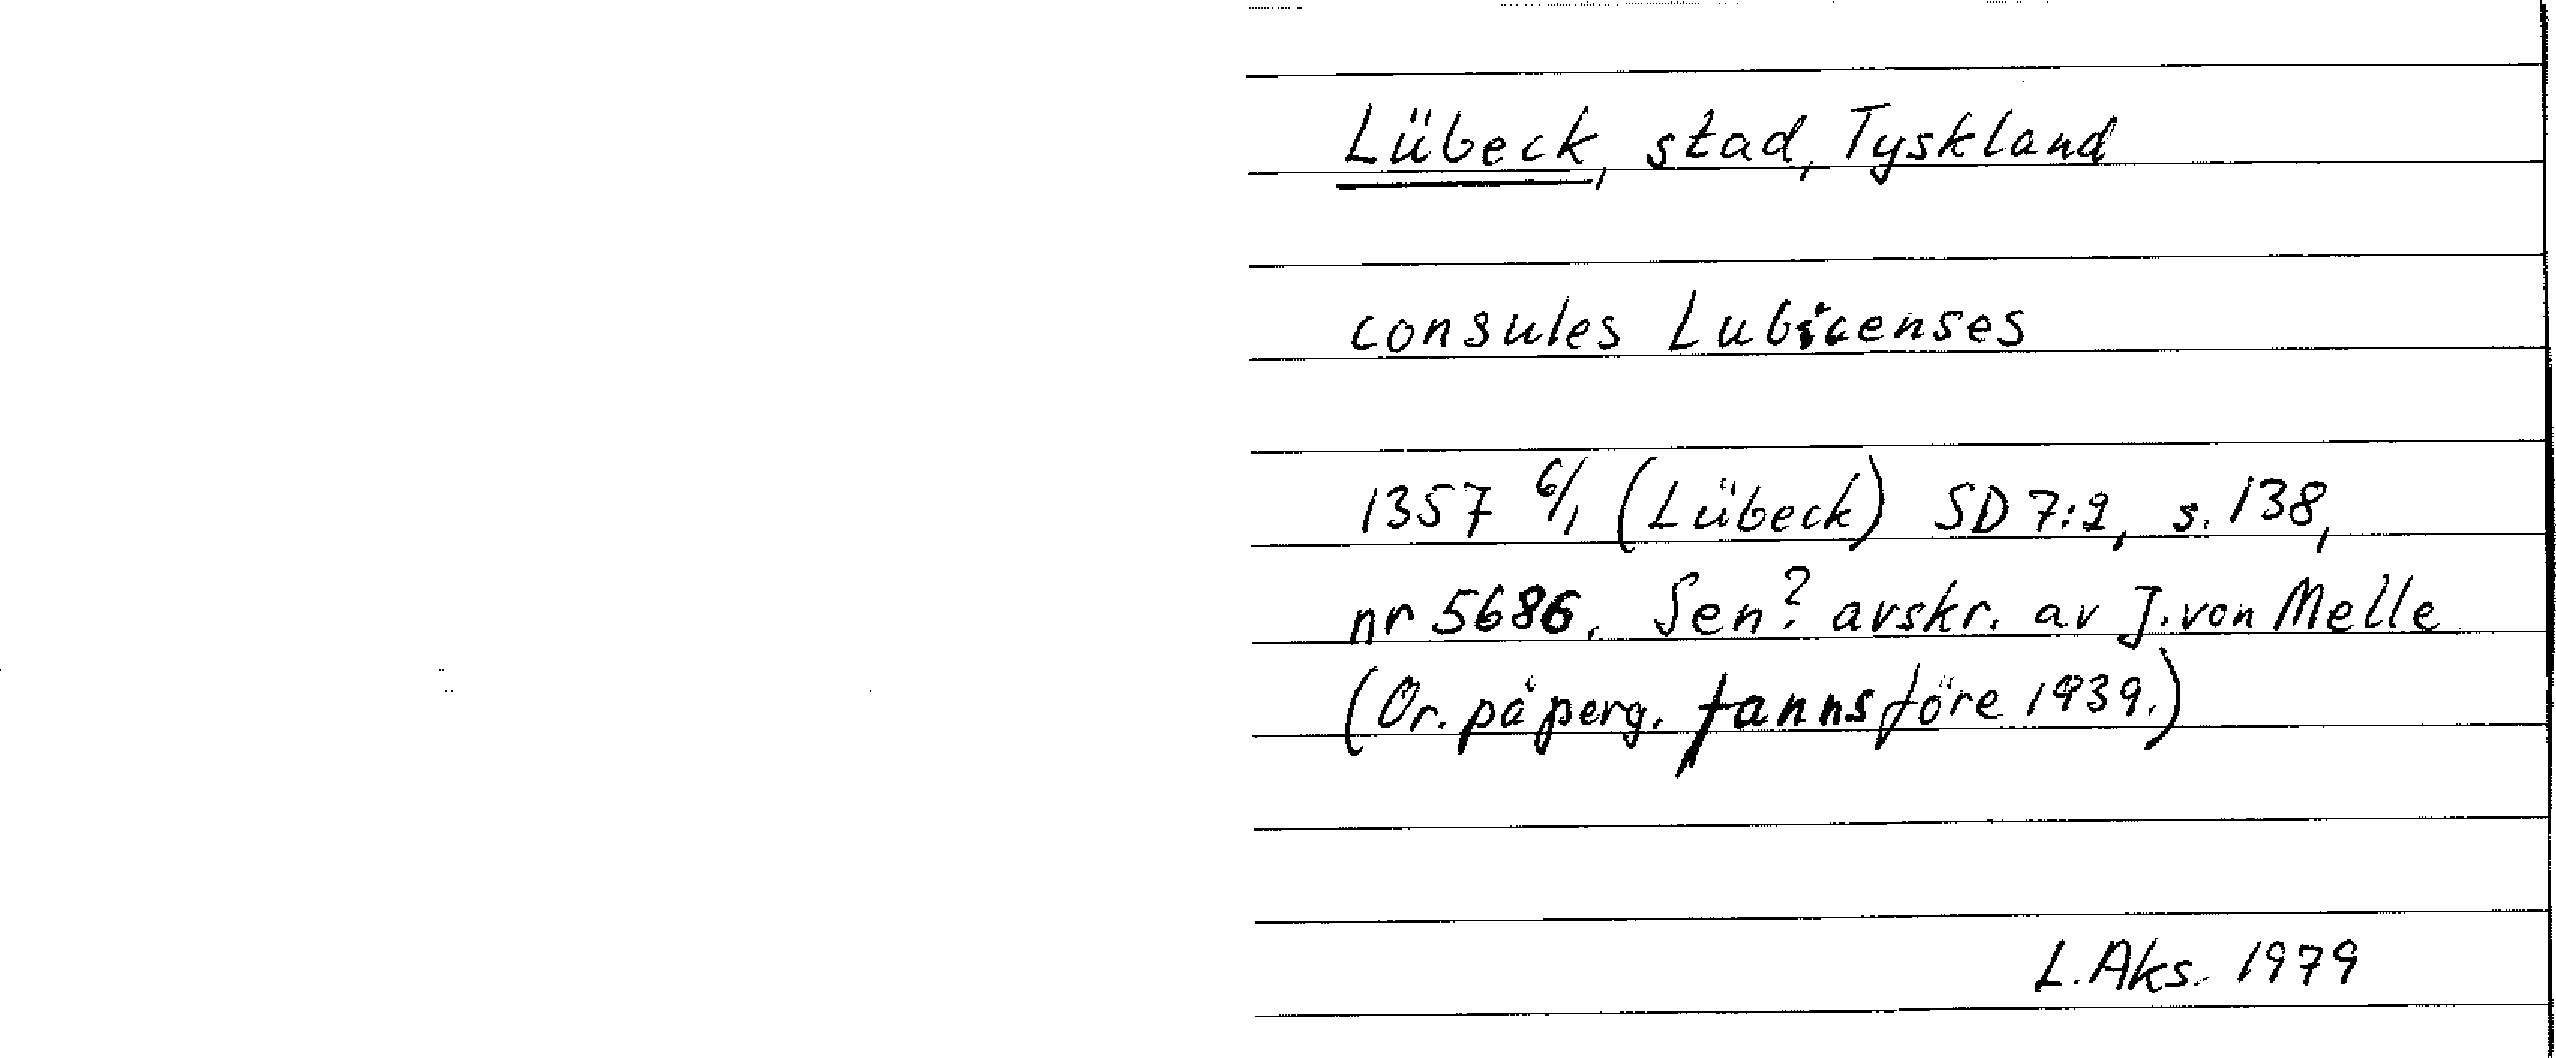 Lübeck, stad, Tyskland
consules Lubicenses
1357 6/1 (Lübeck) SD 7:2, s. 138,
nr 5686. Sen? avskr. av J. von Melle
(Or. på perg. fanns före 1939.)
L. Aks. 1979